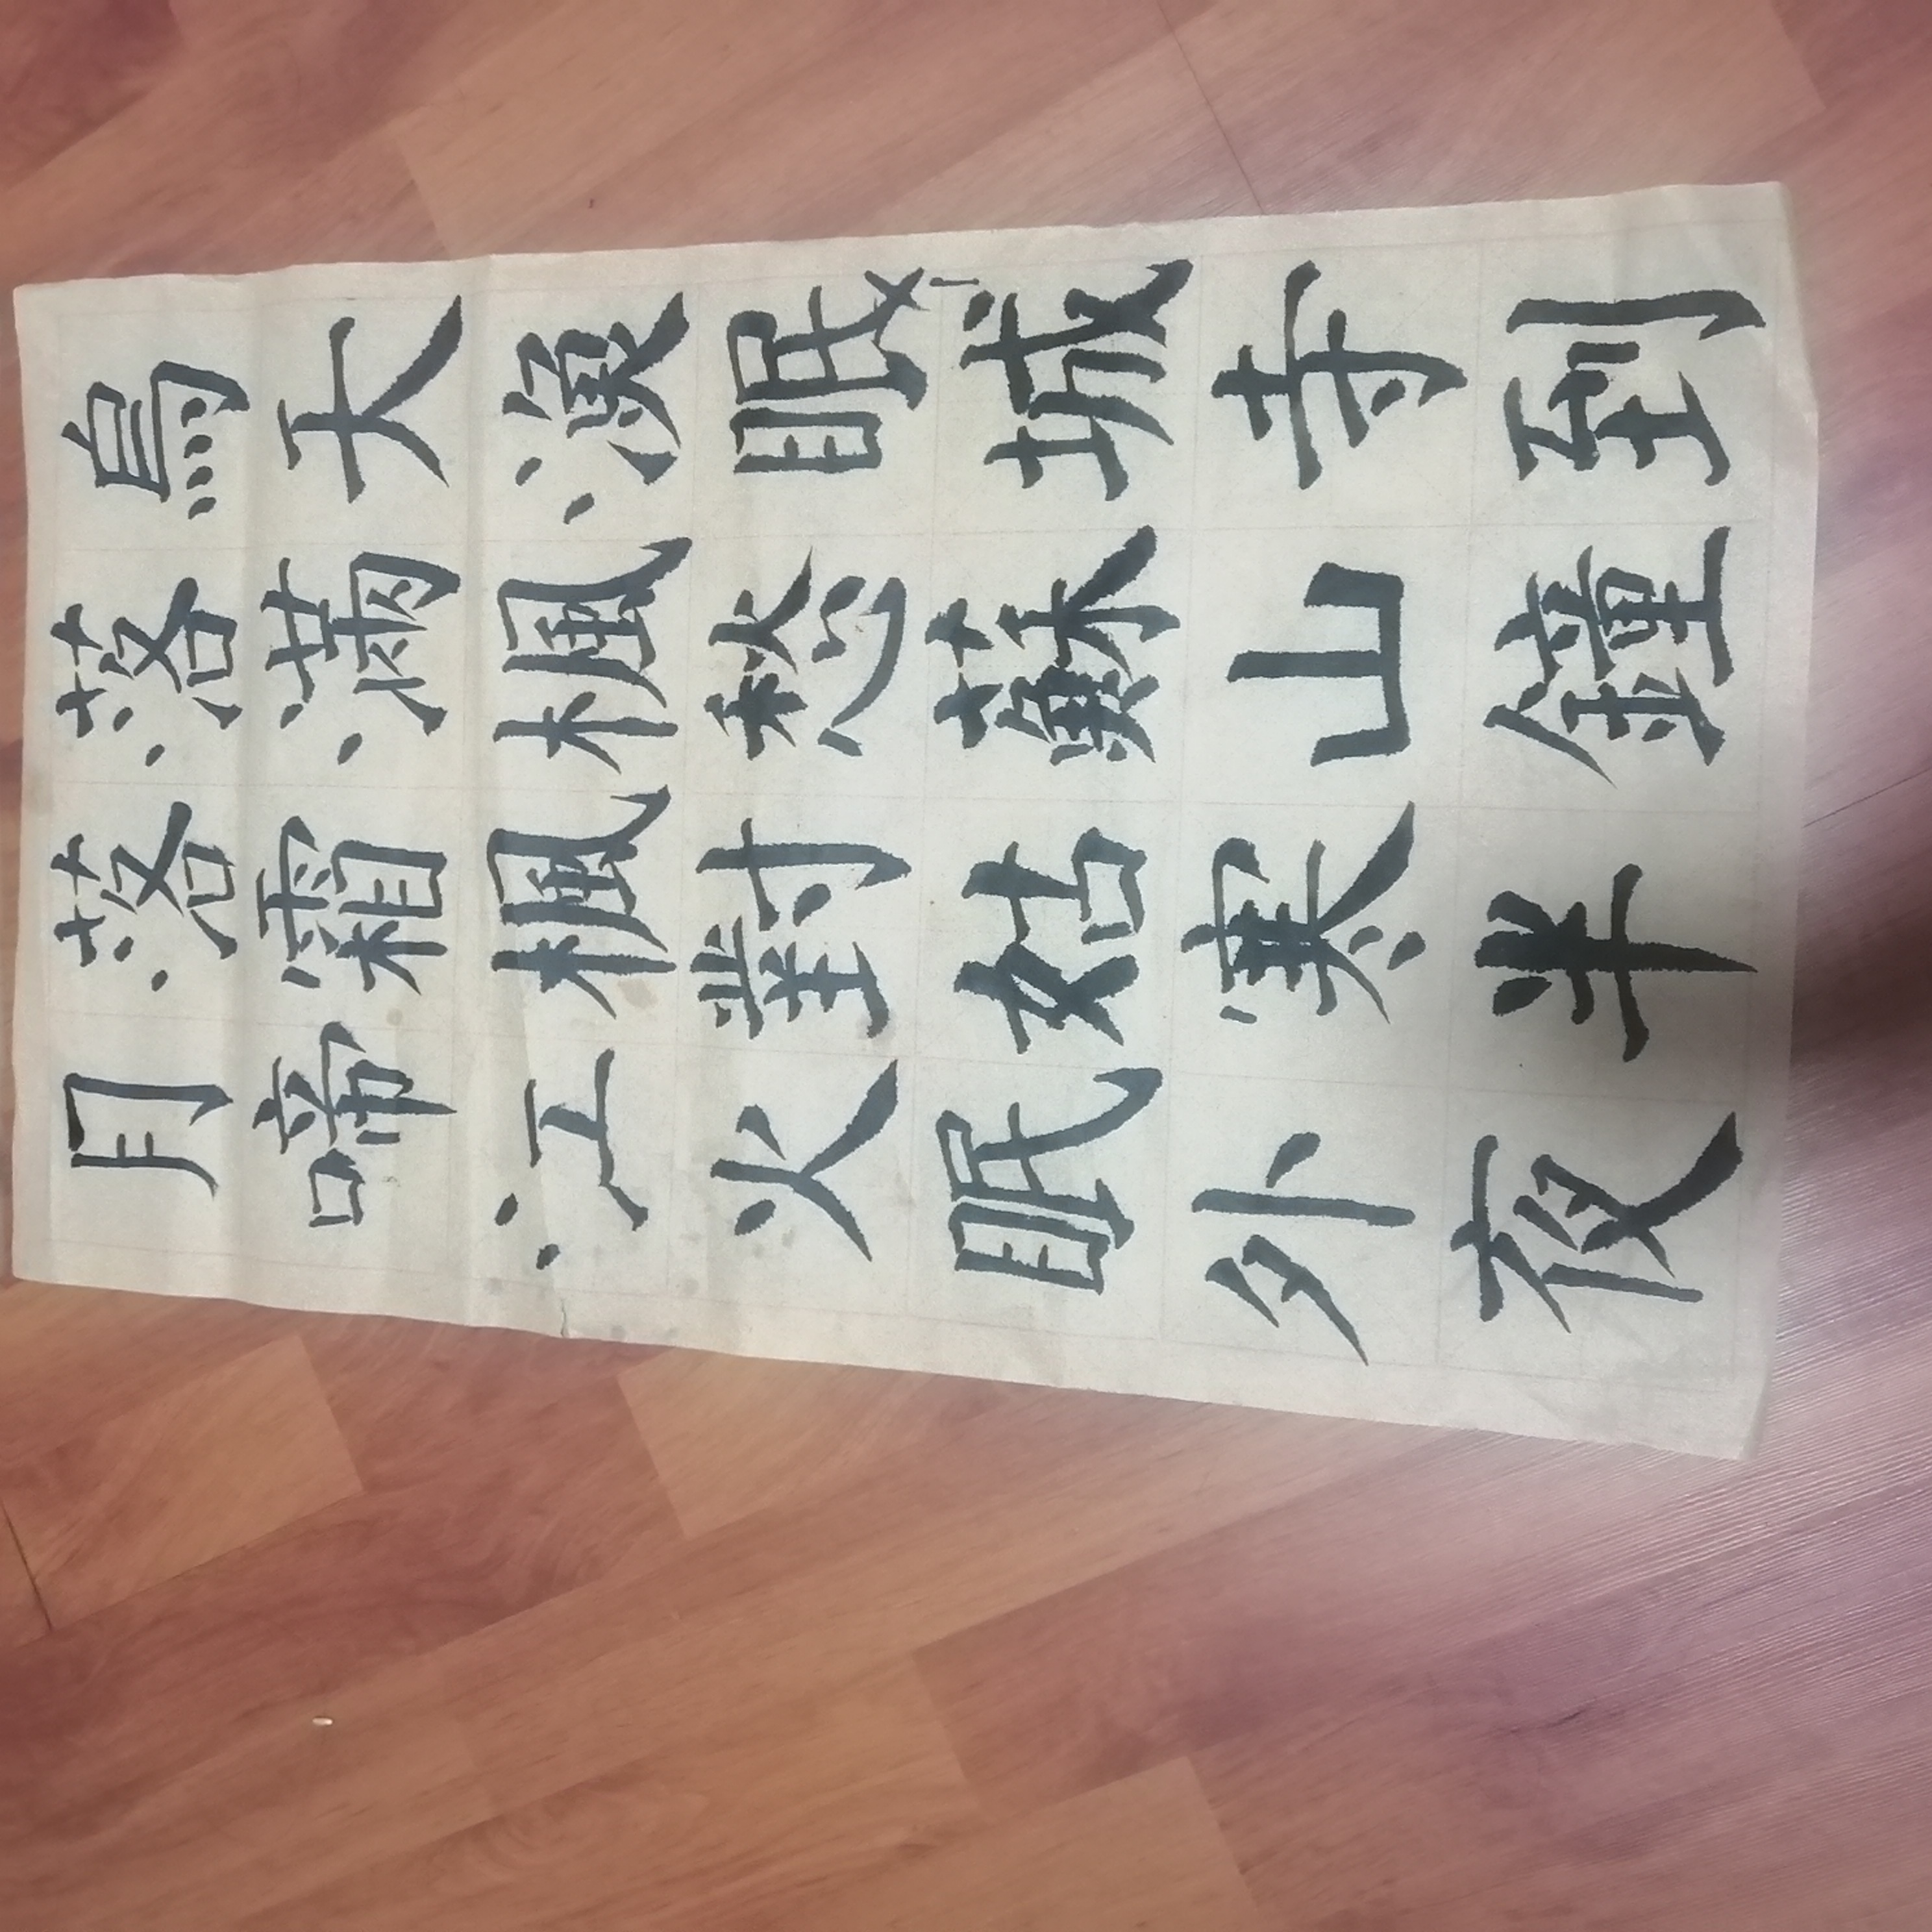 月落落烏
啼霜滿天
江楓楓漁
火對愁眠
眠姑蘇城
外寒山寺
夜半鐘到